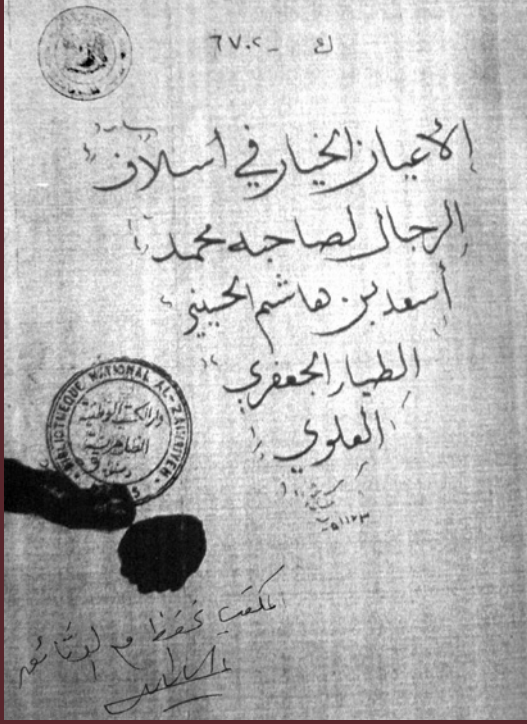 ك - ٦٧٠٢
الأعيان الخيار في أسلاف
الرجال لصاحبه محمد
أسعد بن هاشم الحسيني
الطيار الجعفري
العلوي
١١٢٣
BIBLIOTHEQUE NATIONAL AL-ZAHIRIYEH
دار الكتب الوطنية
الظاهرية
دمشق